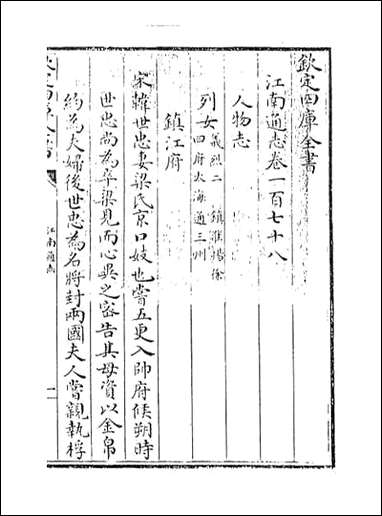 欽定四庫全書
江南通志卷一百七十八
人物志
列女義烈二 鎮淮揚徐
四府太海通三州
鎮江府
宋韓世忠妻梁氏京口妓也嘗五更入帥府候朔時
世忠尚為卒梁見而心異之密告其母資以金帛
約為夫婦後世忠為名將封兩國夫人嘗親執桴
江南通志
一